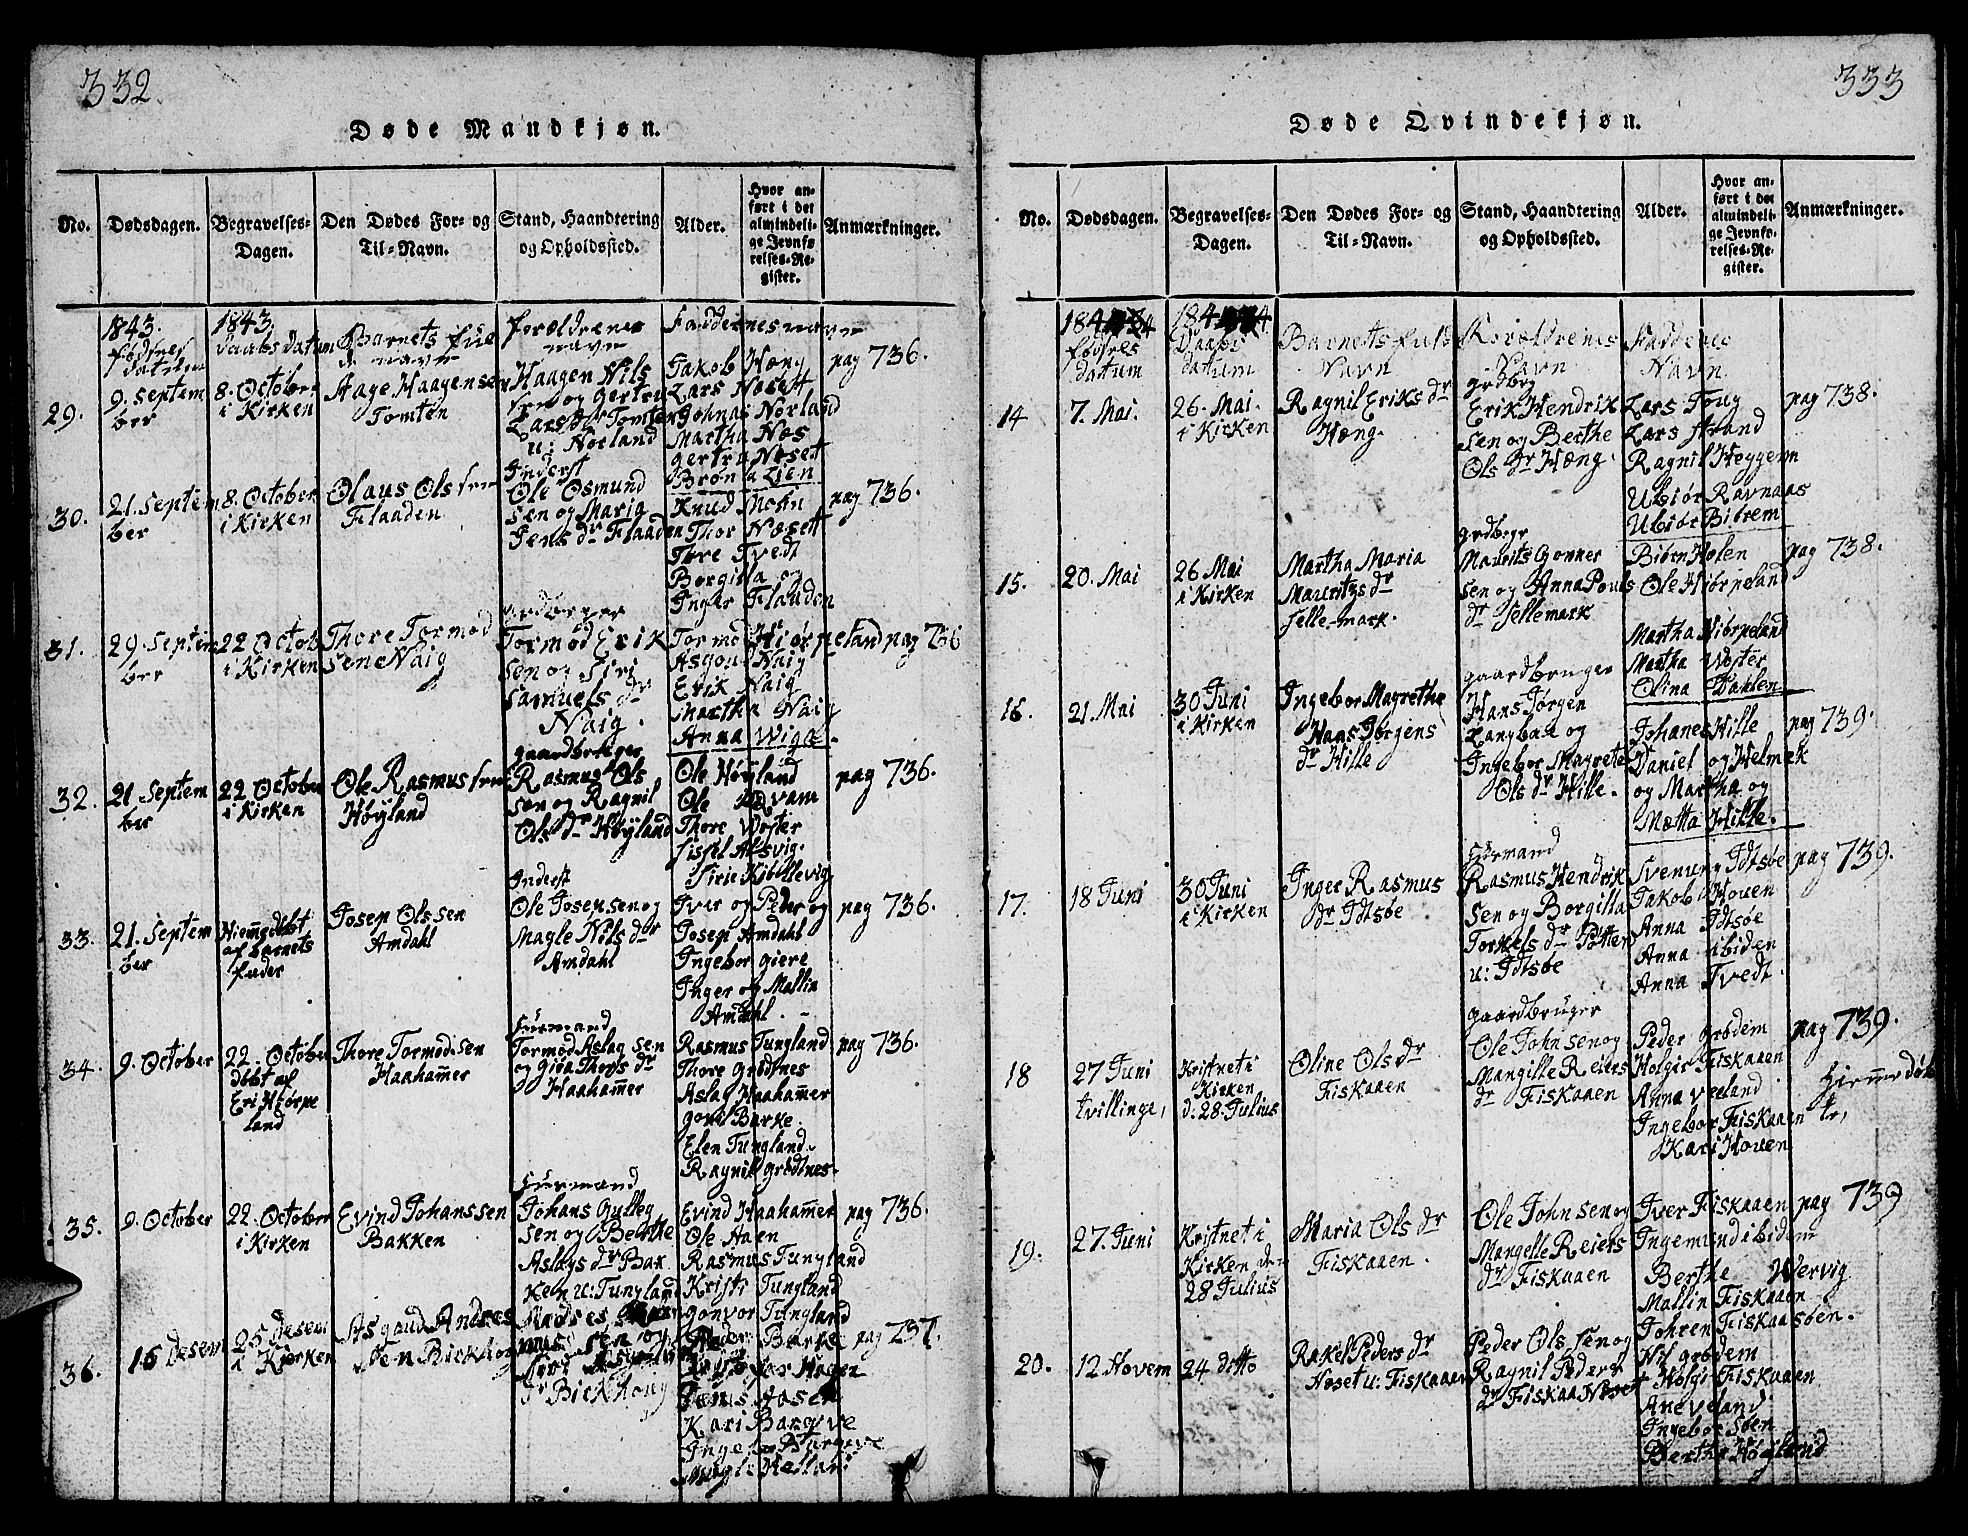 332
Døde Mandkjøn.
No.
Dødsdagen.
Begravelses-
Dagen.
Den Dødes For- og
Til-Navn.
Stand, Haandtering
og Opholdssted.
Alder.
Hvor an-
ført i det
almindeli-
ge Jevnfø
relses-Re-
gister.
Anmærkninger.
1843.
fødsels
datum
1843.
Daabsdatum
Barnets ful
de navn
forældrenes
navn
Faddernes navn
29.
9. Septem
ber
8. October
i Kirken
Aage Haagensen
Tomten
Haagen Nils
sen og Gertru
Lars dr Tomten
u: Norland
Jakob Hæng
Lars Næsett
Johnas Norland
Martha Næs
Gertru Næset
Brøna Lien
pag 736.
30.
21. Septem
ber
8. October
i Kirken
Olaus Olssen
Flaaden
Inderst
Ole Osmund
sen og Marig
Jens dr Flaaden
Knud Mohn
Thor Næsett
Tore Tvedt
Borgilla og
Inger Flaaden
pag 736.
31.
29. Septem
ber
22 Octob
i Kirken
Thore Tormod
sen Naig
Grdbruger
Tormod Erik
sen og Siri
Samuels dr
Naig.
Tormod Hiørpeland
Asgou Naig
Erik Naig
Martha Naig
Anna Wiga
pag 736
32.
21. Septem
ber
22 October
i Kirken
Ole Rasmussen
Høyland
gaardbruger
Rasmus Ols
sen og Ragnil
Ols dr Høyland
Ole Høyland
Ole Qvam
Thore Woster
Sissil Alsvig.
Sirie Kibellevig
pag 736.
33.
21. Septem
ber
Hiemgdøbt
af barnets
fader
Josep Olssen
Amdahl
Inderst
Ole Josepsen og
Magle Nils dr
Amdahl
Iver og Peder og
Josep Amdahl
Ingebor giere
Inger og Mallin
Amdahl.
pag 736.
34.
9. October
22. October
døbt af
Eri Hjørpe
land
Thore Tormodsen
Haahamer
Huusmand
Tormod Aslagsen
og Gioa Thors dr
Haahamer
Rasmus Tungland
Thore Grødtnes
Aslag Haahamer
Goril Barke
Elen Tungland
Ragnil Grødtnes.
pag 736.
35.
9. October
22. October
i Kirken
Evind Johanssen
Bakken
Huusmand
Johans Gulleg
sen og Berthe
Aslags dr Bak
ken u: Tungland
Eivind Haahamer
Ole Aaen
Rasmus Tungland
Kristi Tungland
Gonvor Tungland
pag 736.
36.
16 Desem
25 Desem
i Kierken
Asgaud Andres
sen Birkhoug
Peder Barke
Jens Hosen
Kari Bargeve
pag 737.
333
Døde Qvindekjøn.
No.
Dødsdagen.
Begravelses-
Dagen.
Den Dødes For- og
Til-Navn.
Stand, Haandtering
og Opholdssted.
Alder.
Hvor an-
ført i det
almindeli-
ge Jevnfø-
relses-Re-
gister.
Anmærkninger.
1844
fødsels
datum
1844
Daabs
datum
Barnets fuld
Navn
Forældrenes
Navn
Faddernes
Navn
14
7. Mai.
26. Mai.
i Kirken
Ragnil Eriks dr
Hæng.
grdbrg
Erik Hendrik
sen og Berthe
Ols dr Hæng.
Lars Toug
Lars Strand
Ragnil Heggem
Ubiør Ravnaas
Ubiør Biørem
pag 738.
15.
20. Mai
26. Mai
i Kirken
Martha Maria
Mauritzs dr
Sellemark.
grdbrgr
Maurits Gonner
sen og Anna Pouls
dr Sellemark
Biørn Holen
Ole Hiørpeland
Martha Hiorpeland
Martha Woster
Olina Dahlen
pag 738.
16.
21. Mai
30 Juni
i Kirken
Ingebor Magrethe
Haas Jørgens
dr Hille
gaardbruger
Hans Jørgen
Langbaa og
Ingebor Magrete
Ols dr Hille.
Johanes Hille
Daniel og Helmek
og Martha og
Mætta Hille.
pag 739.
17.
18 Juni
30 Juni
i Kirken
Inger Rasmus
dr Idtsøe
Huusmand
Rasmus Hendrik
sen og Borgilla
Torkels dr Pøtter
u: Idtsøe
Svenung Idtsøe
Jakob Hoven
Anna Idtsøe
Anna ibiden
Anna Tvedt.
pag 739.
18
27 Juni
tvillinge,
Kristnet i
Kirken
d: 28. Julius
Oline Ols dr
Fiskaaen
gaardbruger
Ole Johnsen og
Mangille Reiers
dr Fiskaaen
Peder Grødem
Holger Fiskaaen
Anna Veeland
Ingebor Fiskaaen
Kari Hoven
pag 739.
Hiemedøb
te,
19.
27. Juni
Kristnet i
Kirken den
28 Julius
Maria Ols dr
Fiskaaen.
Ole Johnsen og
Mangelle Reiers
dr Fiskaaen
Iver Fiskaaen
Ingemund ibidem
Berthe Wervig
Mallin Fiskaaen
Johren Fiskaasøen.
pag 739
20.
12 Novem
24 ditto
Rakel Peders dr
Næset u: Fiskaaen
Peder Olssen og
Ragnil Peders
dr Fiskaa Næset
Nil grødem
Holgi Fiskaaen
Ane Veland
Ingebor Søen
Berthe Høgland